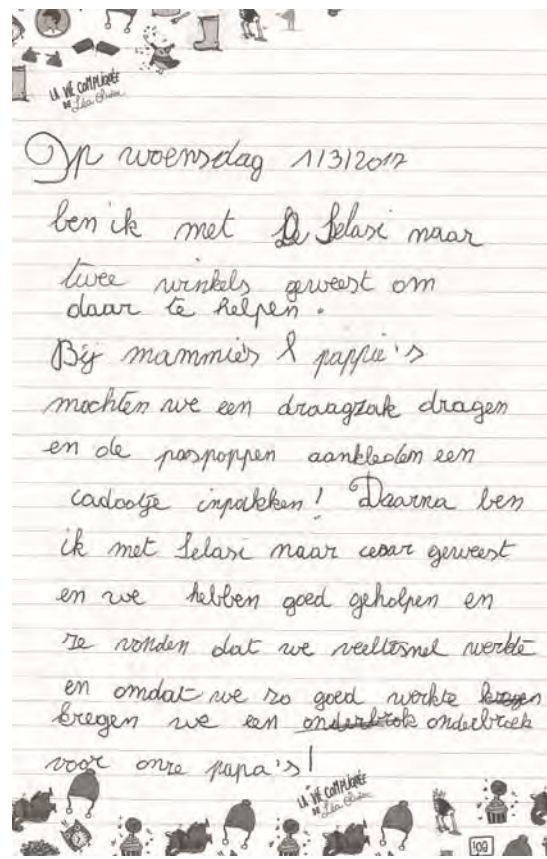 LA VIE COMPLIQUÉE
DE Léa Olivier
Op woensdag 1/3/2017
ben ik met Selasi naar
twee winkels geweest om
daar te helpen.
Bij mammie's & pappie's
mochten we een draagzak dragen
en de paspoppen aankleden een
cadootje inpakken! Daarna ben
ik met Selasi naar cesar geweest
en we hebben goed geholpen en
ze vonden dat we veeltesnel werkte
en omdat we zo goed werkte
kregen we een onderbroek
voor onze papa's!
LA VIE COMPLIQUÉE
DE Léa Olivier